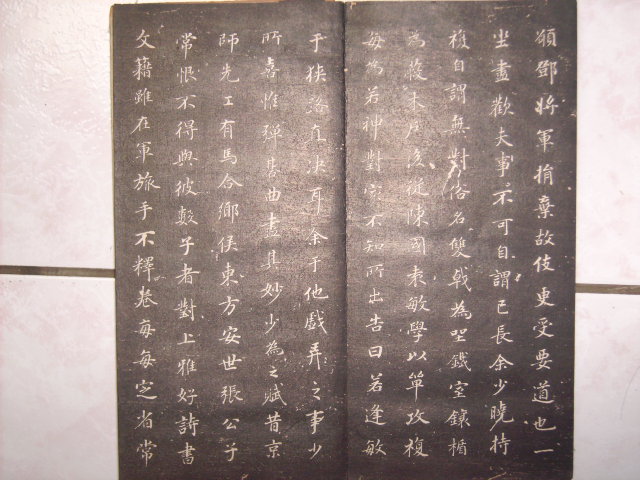 願鄧將軍捐棄故伎更受要道也一
坐盡歡夫事不可自謂己長余少曉持
複自謂無對俗名雙戟為坐鐵室鑲楯
為蔽木戶後從陳國袁敏學以單攻複
每為若神對家不知所出告曰若逢敏
于狹路直決耳余于他戲弄之事少
所喜惟彈棊曲盡其妙少為之賦昔京
師先工有馬合鄉侯東方安世張公子
常恨不得與彼數子者對上雅好詩書
文籍雖在軍旅手不釋卷每每定省常